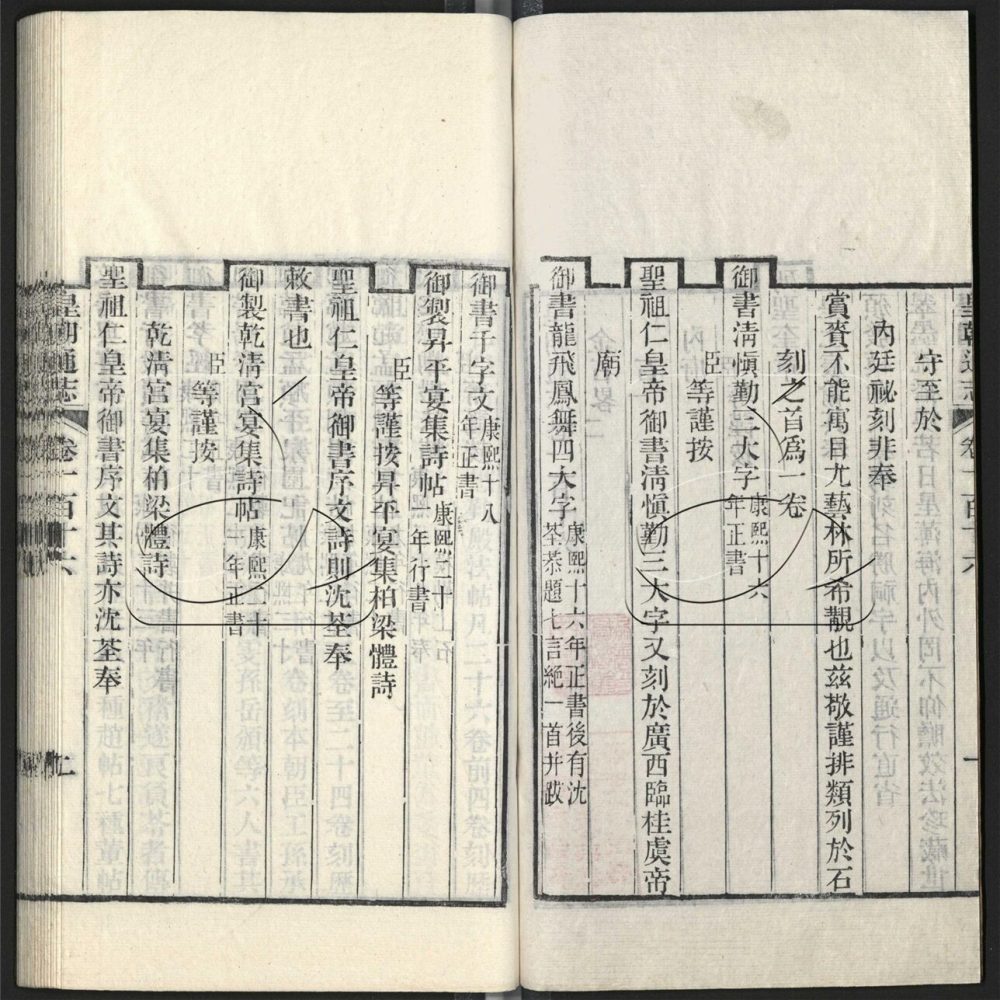 皇朝通志 卷一百十六 一
守至於
內廷祕刻非奉
賞賚不能寓目尤藝林所希覯也茲敬謹排類列於石
刻之首爲一卷
御書淸愼勤三大字康熙十六年正書
臣等謹按
聖祖仁皇帝御書淸愼勤三大字又刻於廣西臨桂虞帝
廟
御書龍飛鳳舞四大字康熙十六年正書後有沈荃恭題七言絶一首并跋
御書千字文康熙十八年正書
御製昇平宴集詩帖康熙二十一年行書
臣等謹按昇平宴集柏梁體詩
聖祖仁皇帝御書序文詩則沈荃奉
敕書也
御製乾淸宮宴集詩帖康熙二十一年正書
臣等謹按
乾淸宮宴集柏梁體詩
聖祖仁皇帝御書序文其詩亦沈荃奉
皇朝通志 卷一百十六